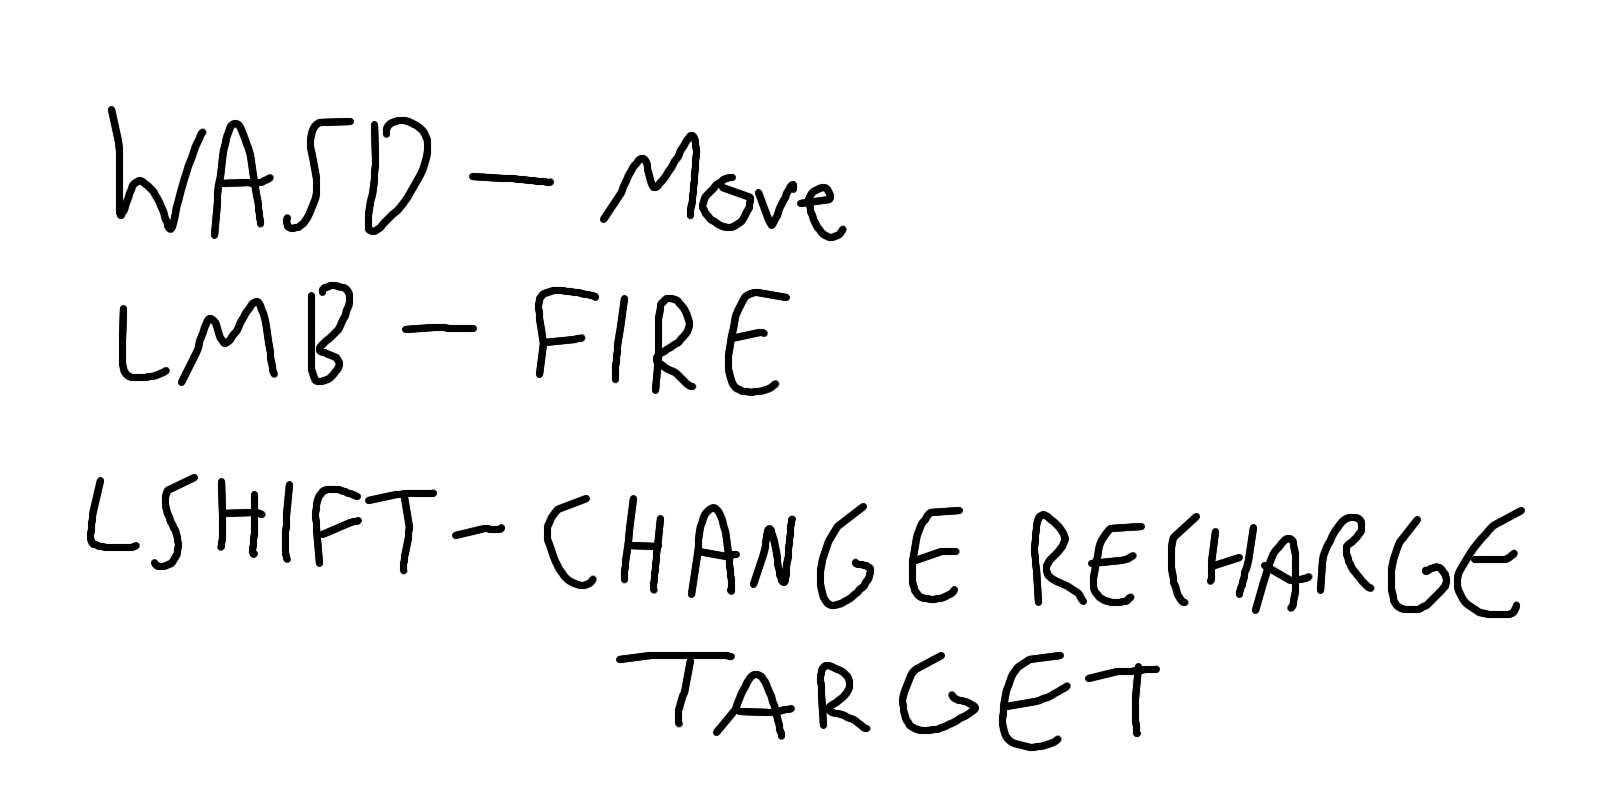 WASD - Move
LMB - FIRE
LSHIFT - CHANGE RECHARGE
TARGET